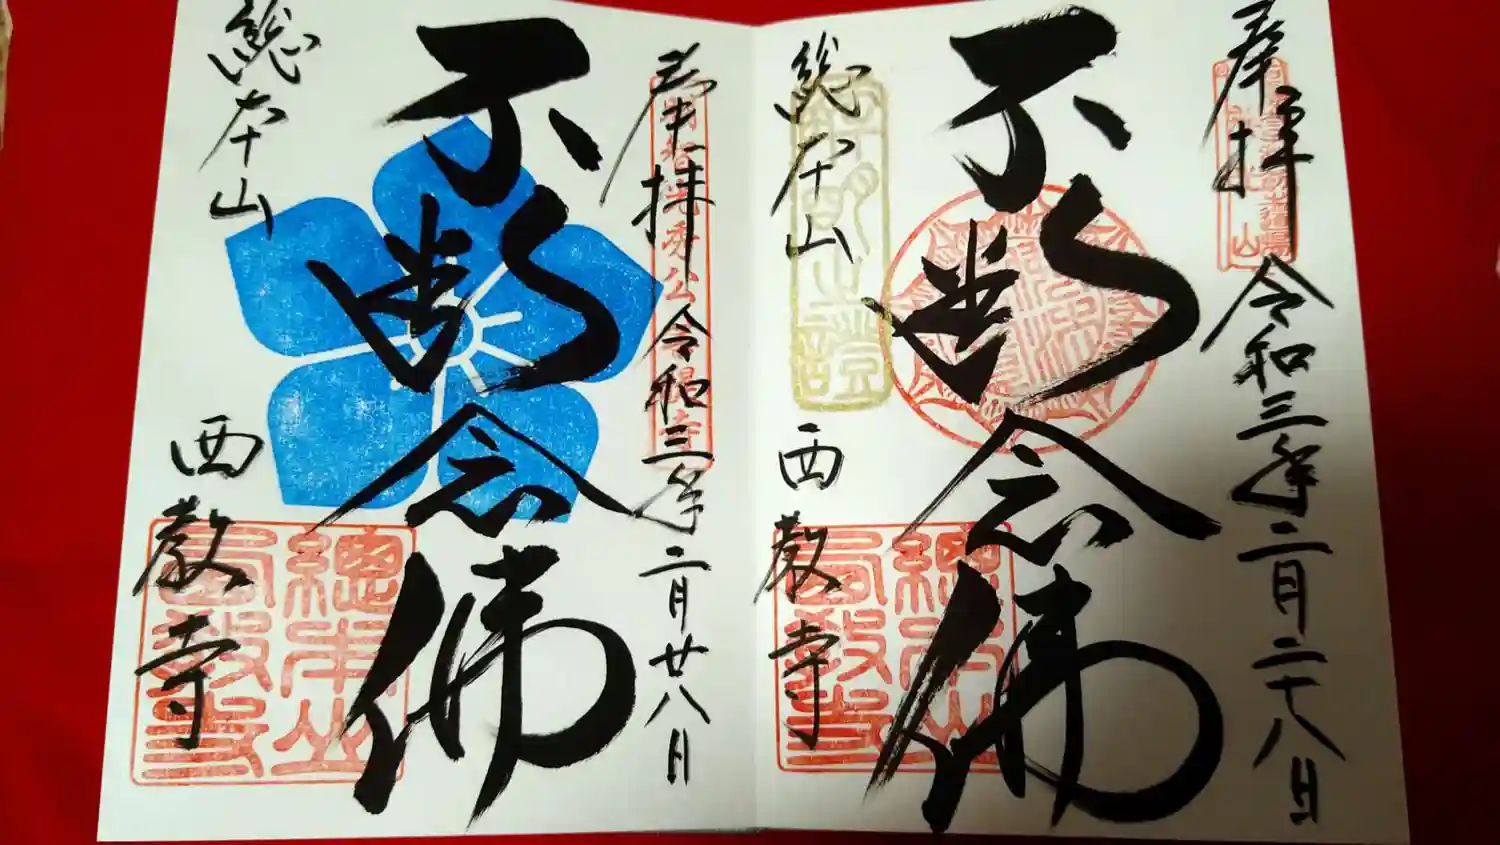 奉拝 令和三年二月二十八日
不断念佛
総本山 西教寺
總本山
西教寺
奉拝 令和三年二月廿八日
不断念佛
総本山 西教寺
總本山
西教寺